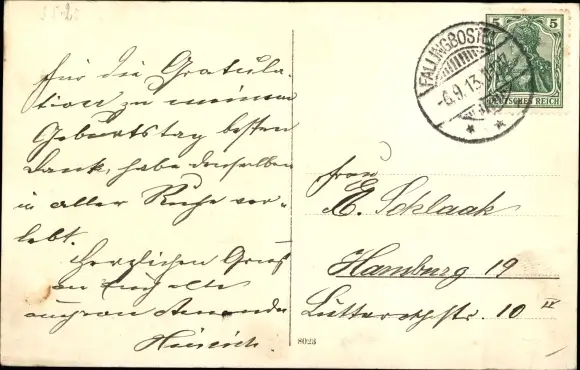 für die Gratula-
tion zu meinem
Geburtstag besten
Dank, habe denselben
in aller Ruhe ver-
lebt.
Herzlichen Gruß
an Euch alle
auch von
Heinrich.
FALLINGBOSTEL
-6.9.13.
5 5
DEUTSCHES REICH
Frau
E. Schlaak
Hamburg 19
Lutterothstr. 10 II
8023